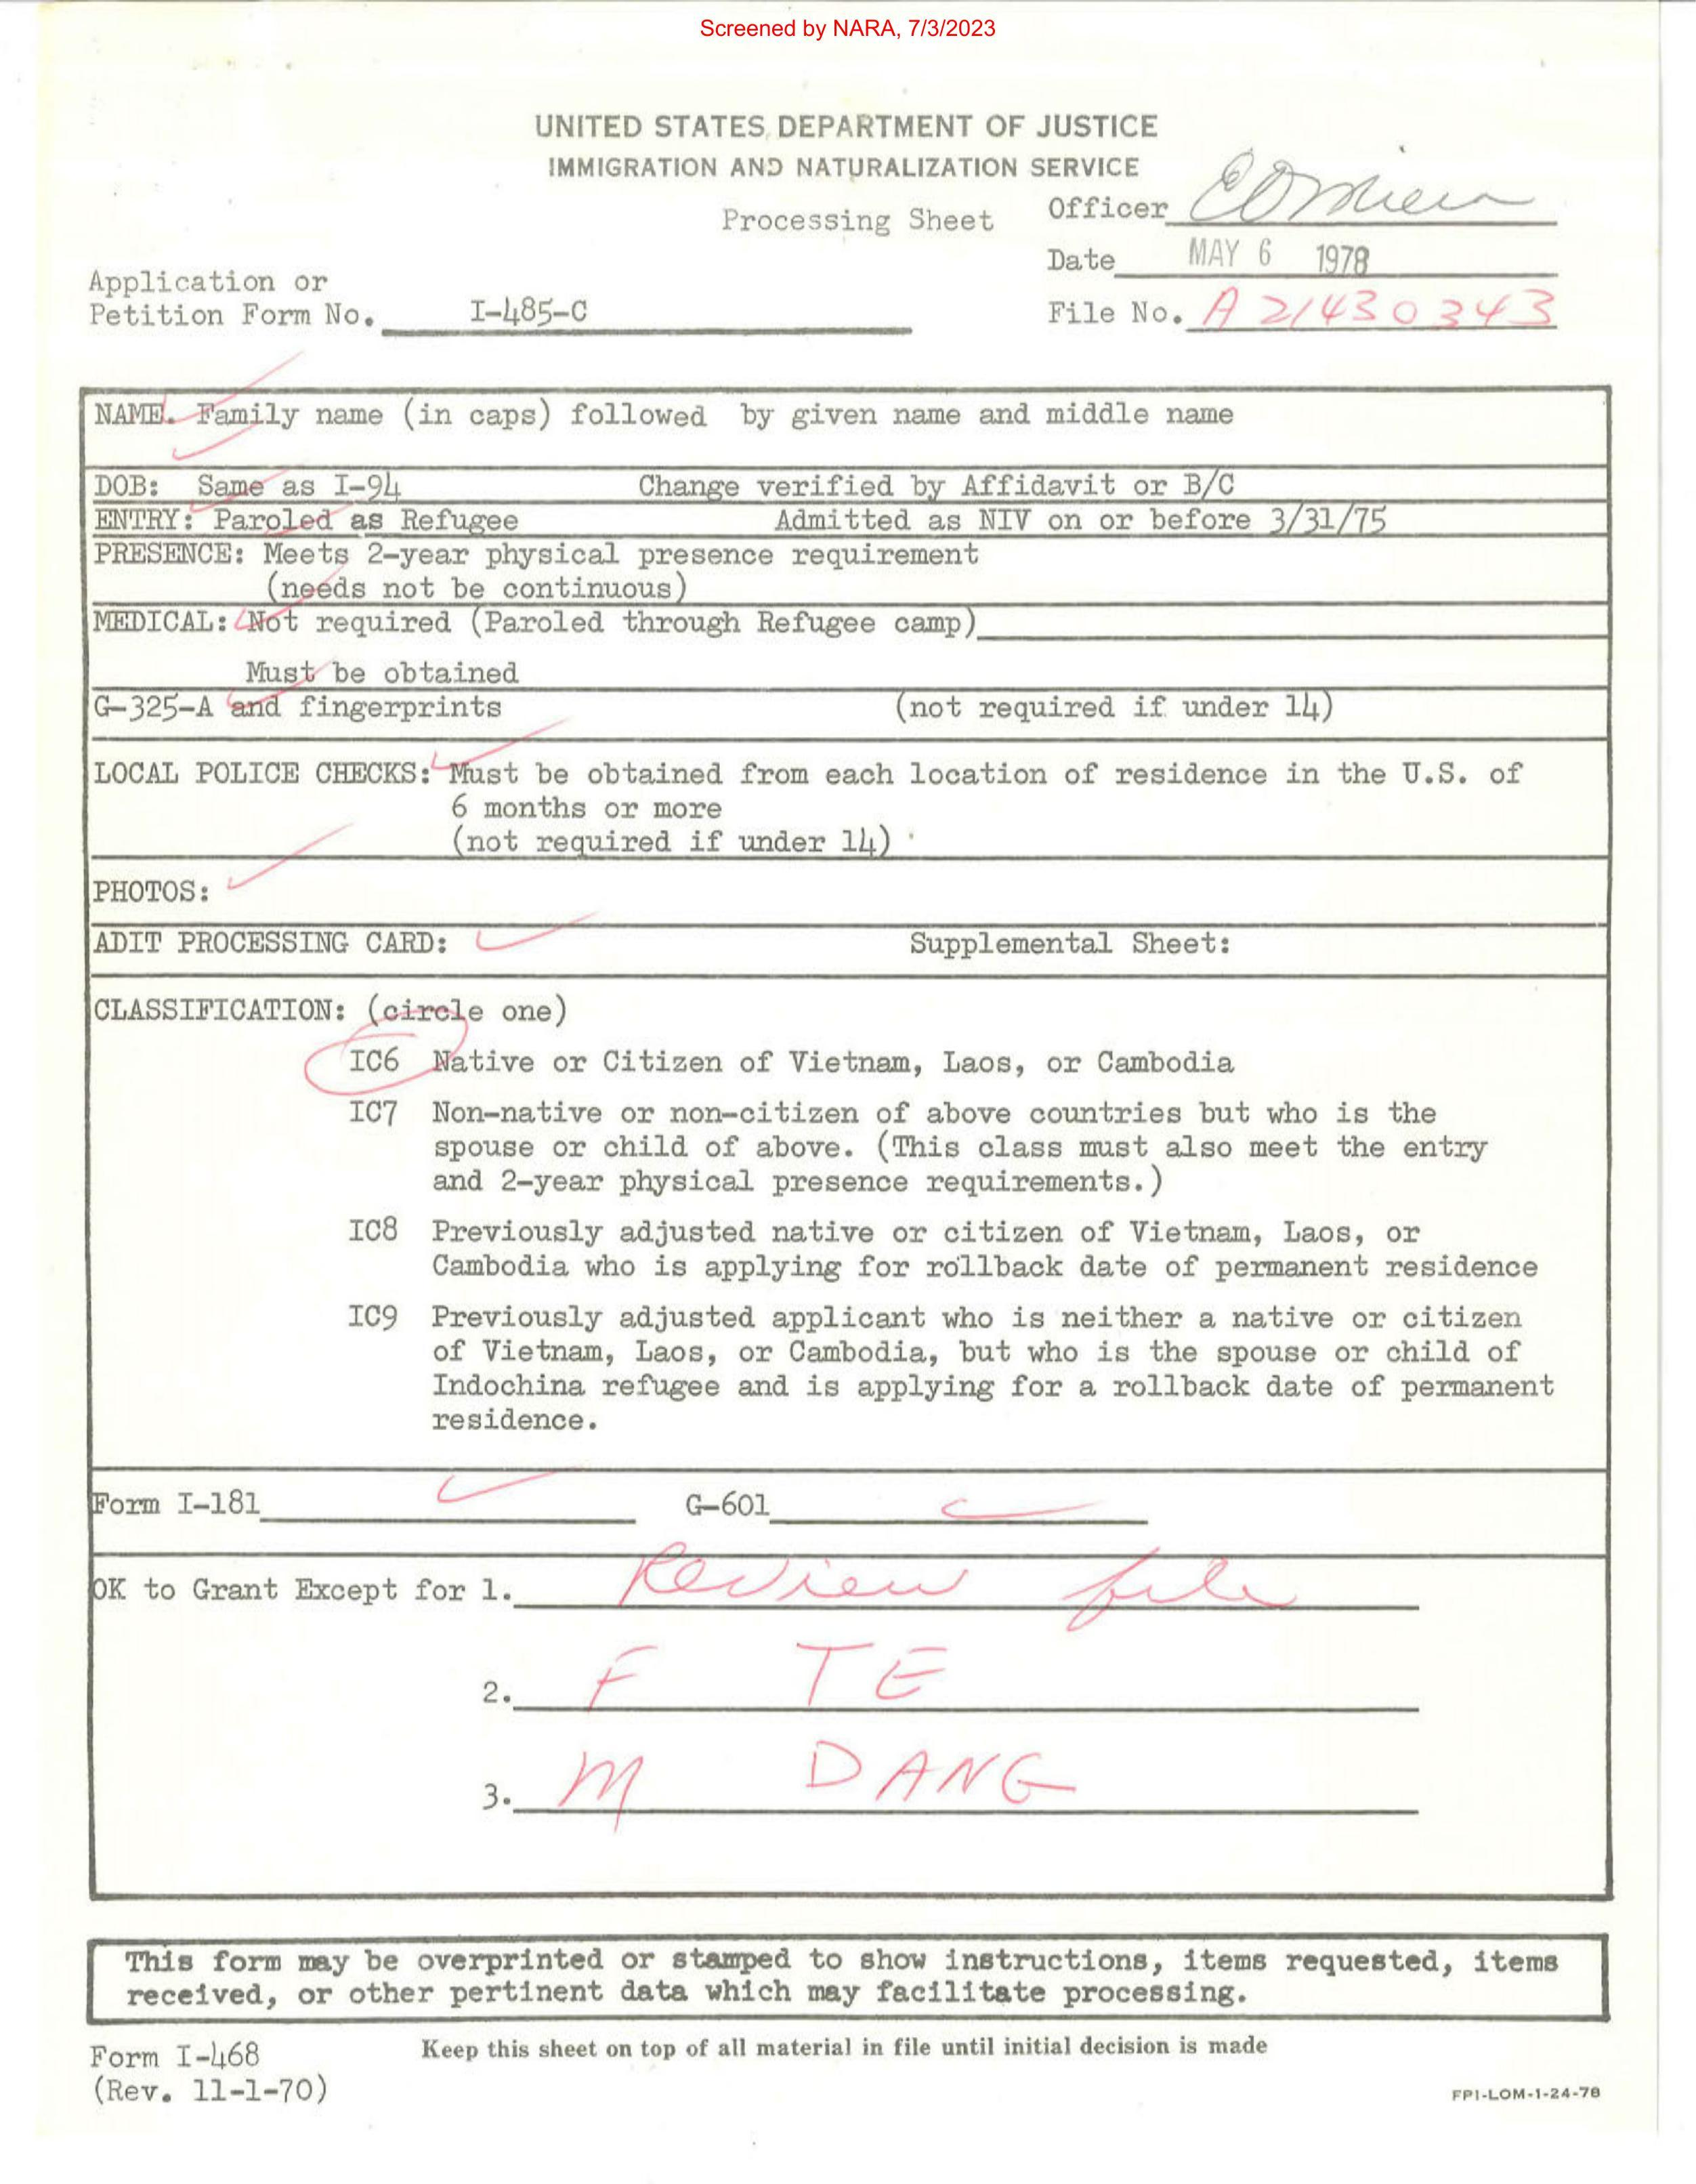 Screened by NARA, 7/3/2023
UNITED STATES DEPARTMENT OF JUSTICE
IMMIGRATION AND NATURALIZATION SERVICE
Processing Sheet
Officer
Date MAY 6 1978
Application or
Petition Form No. I-485-C
File No. A 21430343
NAME. Family name (in caps) followed by given name and middle name
DOB: Same as I-94 Change verified by Affidavit or B/C
ENTRY: Paroled as Refugee Admitted as NIV on or before 3/31/75
PRESENCE: Meets 2-year physical presence requirement
(needs not be continuous)
MEDICAL: Not required (Paroled through Refugee camp)
Must be obtained
G-325-A and fingerprints (not required if under 14)
LOCAL POLICE CHECKS: Must be obtained from each location of residence in the U.S. of
6 months or more
(not required if under 14)
PHOTOS:
ADIT PROCESSING CARD: Supplemental Sheet:
CLASSIFICATION: (circle one)
IC6 Native or Citizen of Vietnam, Laos, or Cambodia
IC7 Non-native or non-citizen of above countries but who is the
spouse or child of above. (This class must also meet the entry
and 2-year physical presence requirements.)
IC8 Previously adjusted native or citizen of Vietnam, Laos, or
Cambodia who is applying for rollback date of permanent residence
IC9 Previously adjusted applicant who is neither a native or citizen
of Vietnam, Laos, or Cambodia, but who is the spouse or child of
Indochina refugee and is applying for a rollback date of permanent
residence.
Form I-181 G-601
OK to Grant Except for 1. Review file
2. F TE
3. M DANG
This form may be overprinted or stamped to show instructions, items requested, items
received, or other pertinent data which may facilitate processing.
Form I-468 Keep this sheet on top of all material in file until initial decision is made
(Rev. 11-1-70)
FPI-LOM-1-24-78